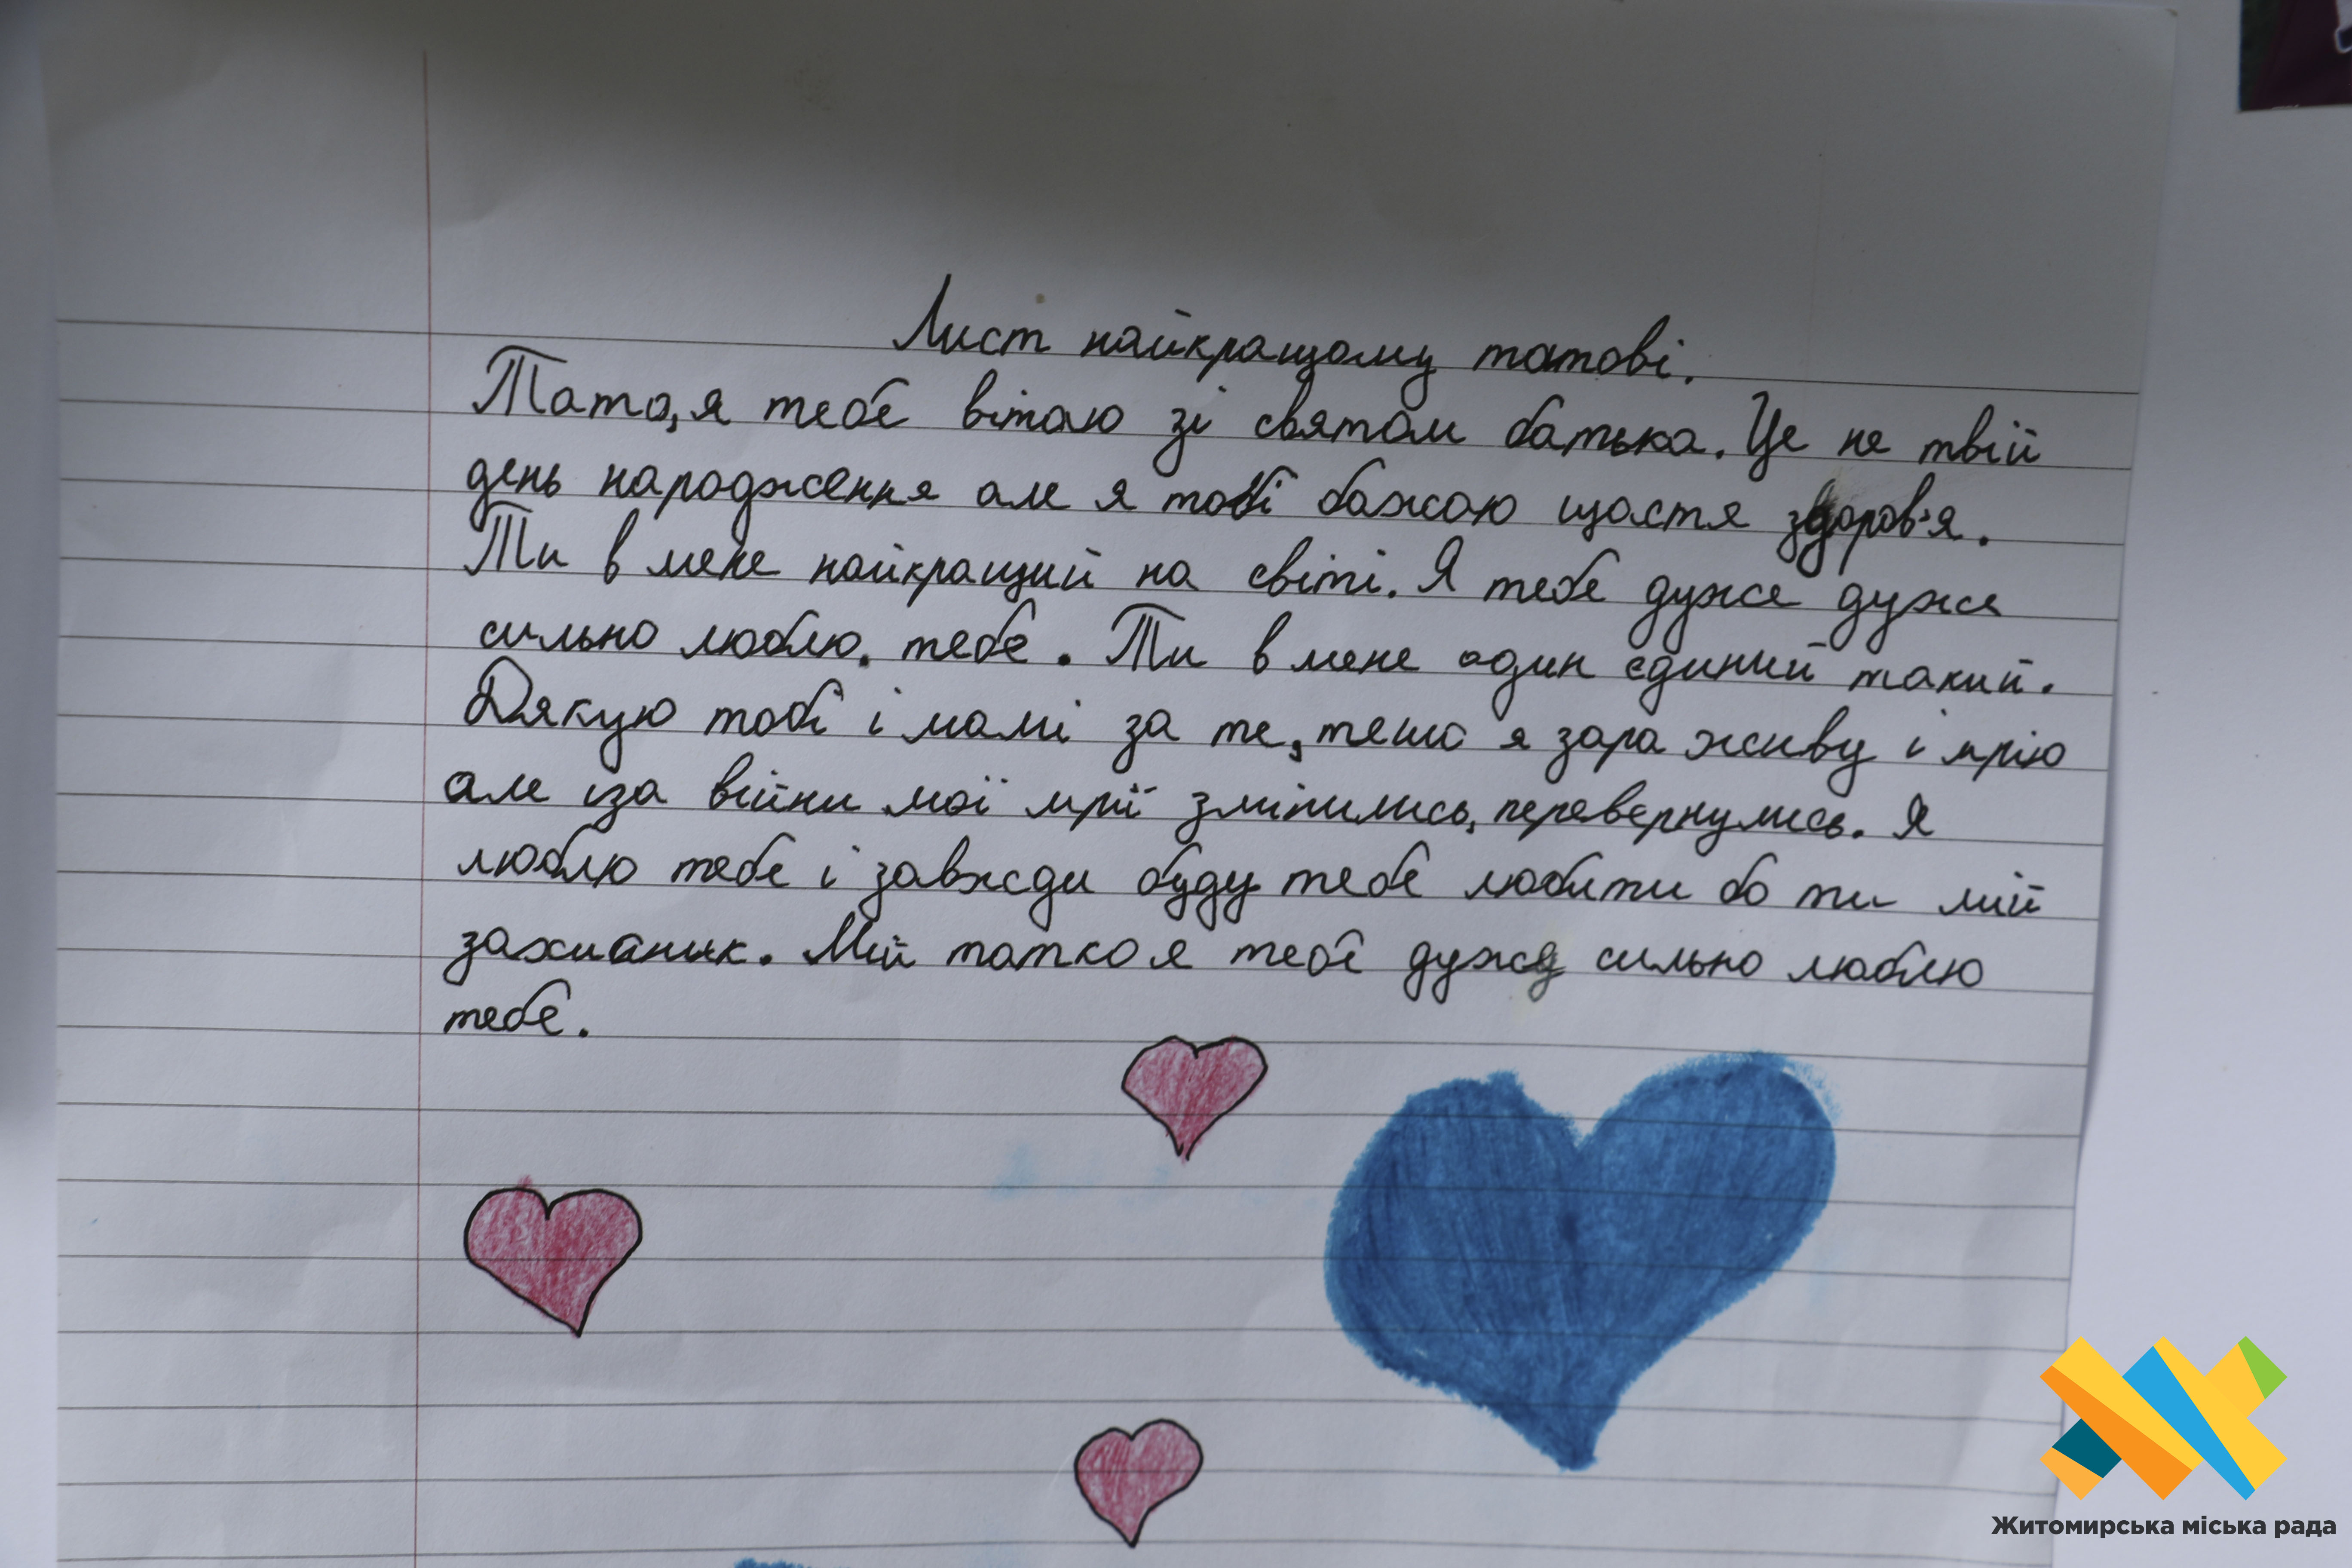 Лист найкращому татові.
Тато, я тебе вітаю зі святом батька. Це не твій
день народження але я тобі бажаю щастя здоров'я.
Ти в мене найкращий на світі. Я тебе дуже дуже
сильно люблю. тебе. Ти в мене один єдиний такий.
Дякую тобі і мамі за те, тешо я зара живу і мрію
але іза війни мої мрії змінились, перевернулись. Я
люблю тебе і завжди буду тебе любити бо ти мій
захианик. Мій татко я тебе дуже сильно люблю
тебе.
Житомирська міська рада